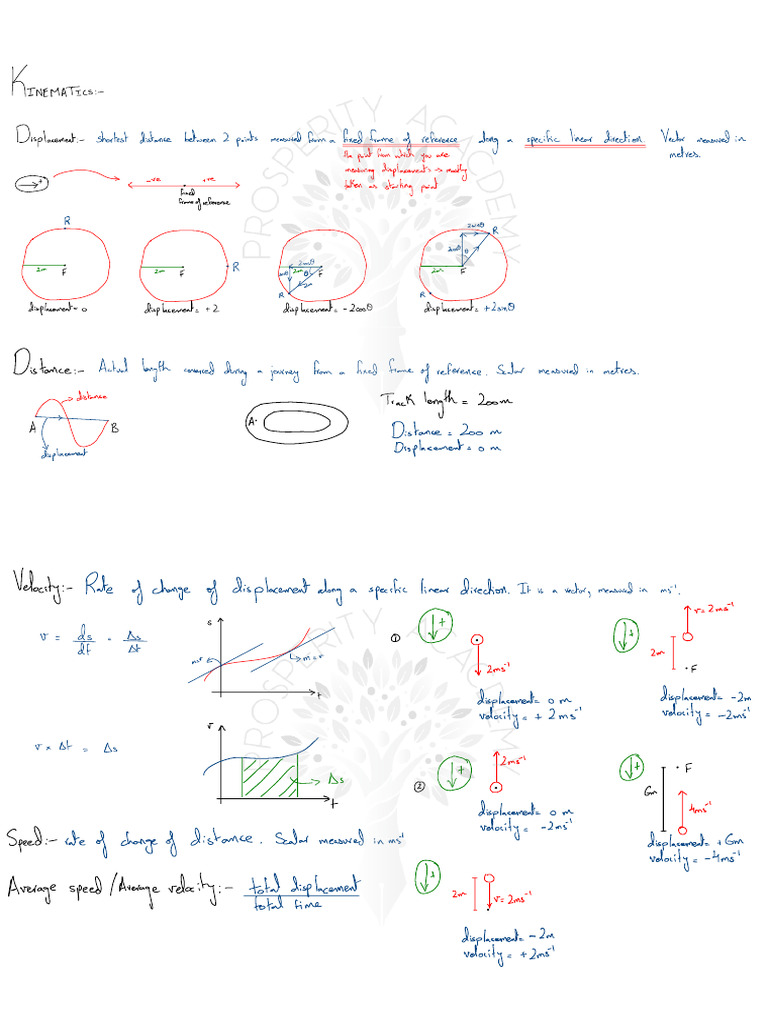 KINEMATICS:-
Displacement:- shortest distance between 2 points measured from a fixed frame of reference along a specific linear direction. Vector measured in metres.
the point from which you are
measuring displacements is mostly
taken as starting point
→+
-ve +ve
fixed
frame of reference
R
2m F
displacement = 0
2m F R
displacement = +2
2cosθ
2m θ F
2m
R
displacement = -2cosθ
2sinθ R
2cosθ θ
2m F
R
displacement = +2sinθ
Distance:- Actual length covered during a journey from a fixed frame of reference. Scalar measured in metres.
distance
A B
displacement
A·
Track length = 200m
Distance = 200 m
Displacement = 0 m
Velocity:- Rate of change of displacement along a specific linear direction. It is a vector, measured in ms⁻¹.
v = ds/dt = Δs/Δt
s
m=v
m=v
t
v × Δt = Δs
v
Δs
t
① ↓+
2ms⁻¹
displacement = 0 m
velocity = +2ms⁻¹
↓+
v = 2ms⁻¹
2m
·F
displacement = -2m
velocity = -2ms⁻¹
② ↓+
2ms⁻¹
displacement = 0 m
velocity = -2ms⁻¹
↓+
·F
6m
4ms⁻¹
displacement = +6m
velocity = -4ms⁻¹
Speed:- rate of change of distance. Scalar measured in ms⁻¹
Average speed / Average velocity:- total displacement
total time
↓+
2m
v = 2ms⁻¹
displacement = -2m
velocity = +2ms⁻¹
PROSPERITY ACACDEMY
PROSPERITY ACACDEMY